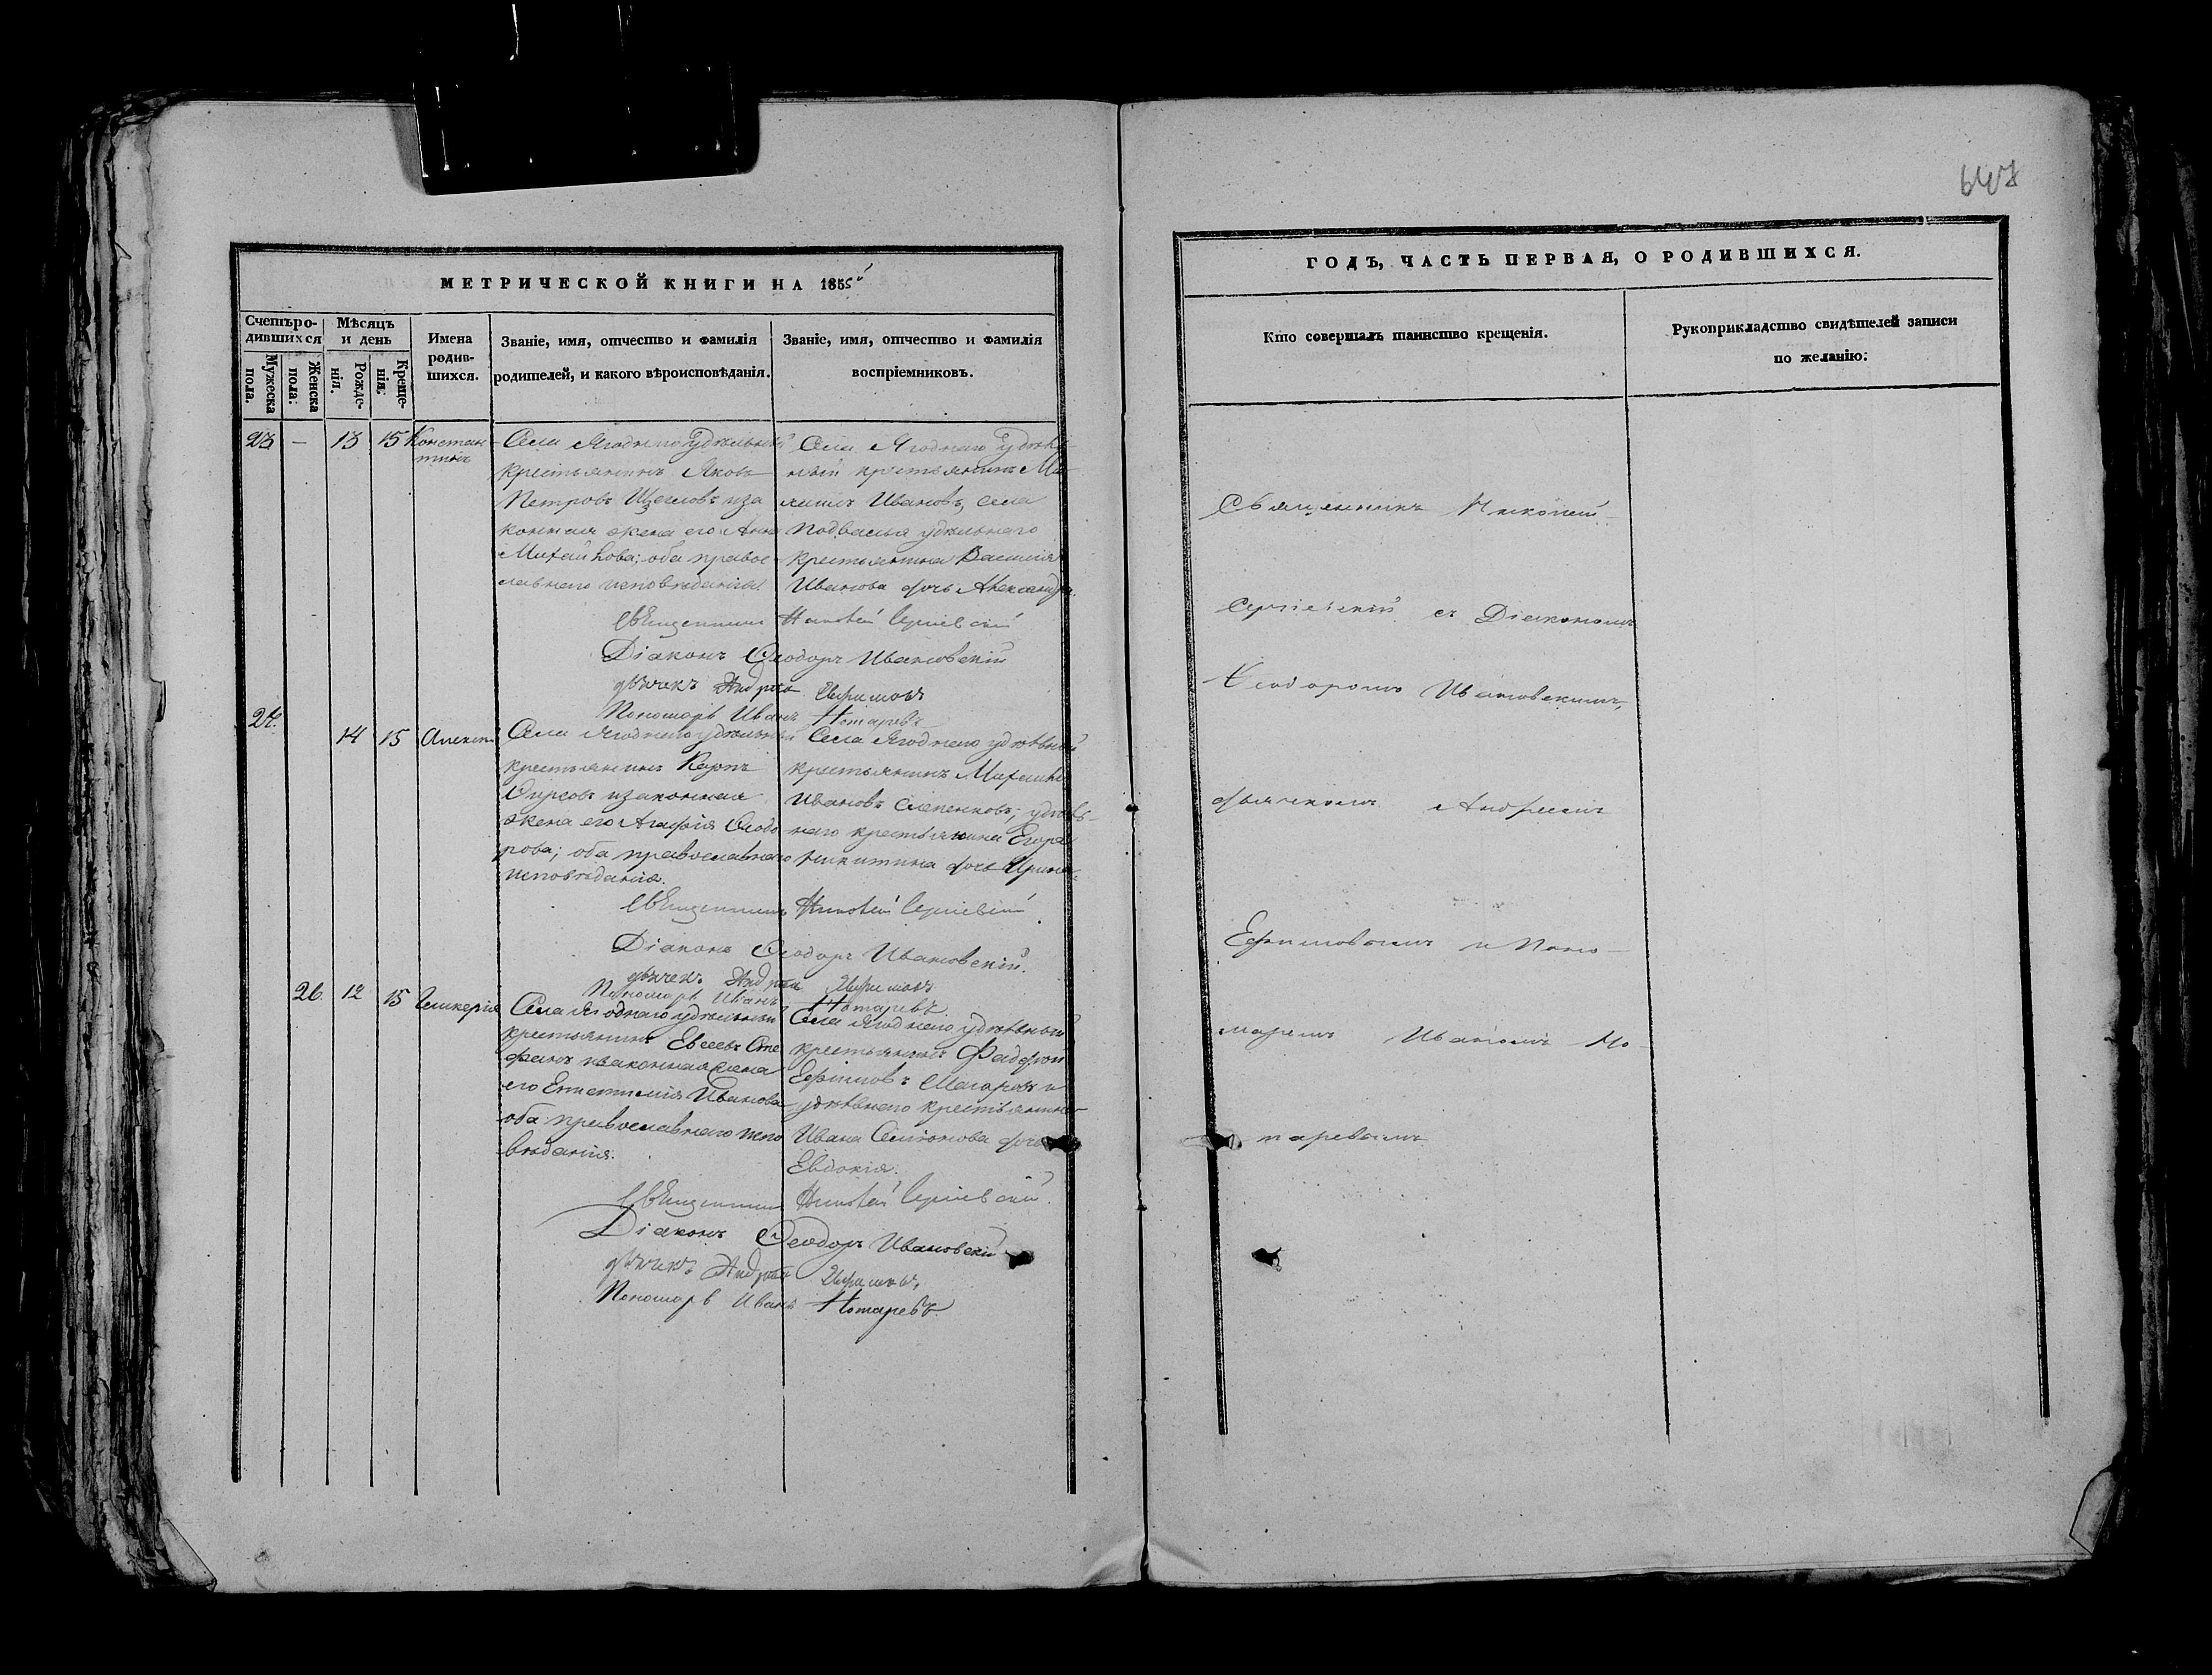 647
МЕТРИЧЕСКОЙ КНИГИ НА 1855й
Счетъ родившихся
Мѣсяцъ и день
Имена родившихся.
Званіе, имя, отчество и фамилія родителей, и какого вѣроисповѣданія.
Званіе, имя, отчество и фамилія воспріемниковъ.
Мужеска пола.
Женска пола:
Рожденія.
Крещенія:
23 — 13 15 Константинъ
Села Ягоднаго удѣльный
крестьянинъ Яковъ
Петровъ Щегловъ иза
конная жена его Анна
Михайлова; оба правос
лавнаго исповѣданія.
Села Ягоднаго удѣль
ный крестьянинъ Ми
Ивановъ, села
Подвалья удѣльнаго
крестьянина Василія
Иванова дочь Александра.
Священникъ Николай Сергіевскій
Діаконъ Ѳеодоръ Ивановскій
дьячекъ Андрей Ефимовъ
Пономарь Иванъ Нотаревъ
24. 14 15 Алексѣй
Села Ягоднаго удѣльный
крестьянинъ Карпъ
Ѳирсовъ изаконная
жена его Агафія Ѳеодо
рова; оба православнаго
исповѣданія.
Села Ягоднаго удѣльный
крестьянинъ Михаилъ
Ивановъ удѣль
наго крестьянина Егора
Никитина дочь Ирина.
Священникъ Николай Сергіевскій
Діаконъ Ѳеодоръ Ивановскій.
дьячекъ Андрей Ефимовъ
Пономарь Иванъ Нотаревъ.
26. 12 15 Гликерія
Села Ягоднаго удѣльный
крестьянинъ Евсевъ Сте
фанъ изаконная жена
его Иванова
оба православнаго испо
вѣданія.
Села Ягоднаго удѣльный
крестьянинъ
Ефимовъ и
удѣльнаго крестьянина
Ивана Семіонова дочь
Евдокія.
Священникъ Николай Сергіевскій.
Діаконъ Ѳеодоръ Ивановскій
дьячекъ Андрей Ефимовъ,
Пономарь Иванъ Нотаревъ.
ГОДЪ, ЧАСТЬ ПЕРВАЯ, О РОДИВШИХСЯ.
Кто совершалъ таинство крещенія.
Рукоприкладство свидѣтелей записи
по желанію:
Священникъ Николай
Сергіевскій съ Діакономъ
Ѳеодоромъ Ивановскимъ,
дьячкомъ Андреемъ
Ефимовымъ и Поно-
маремъ Иваномъ Но-
таревымъ